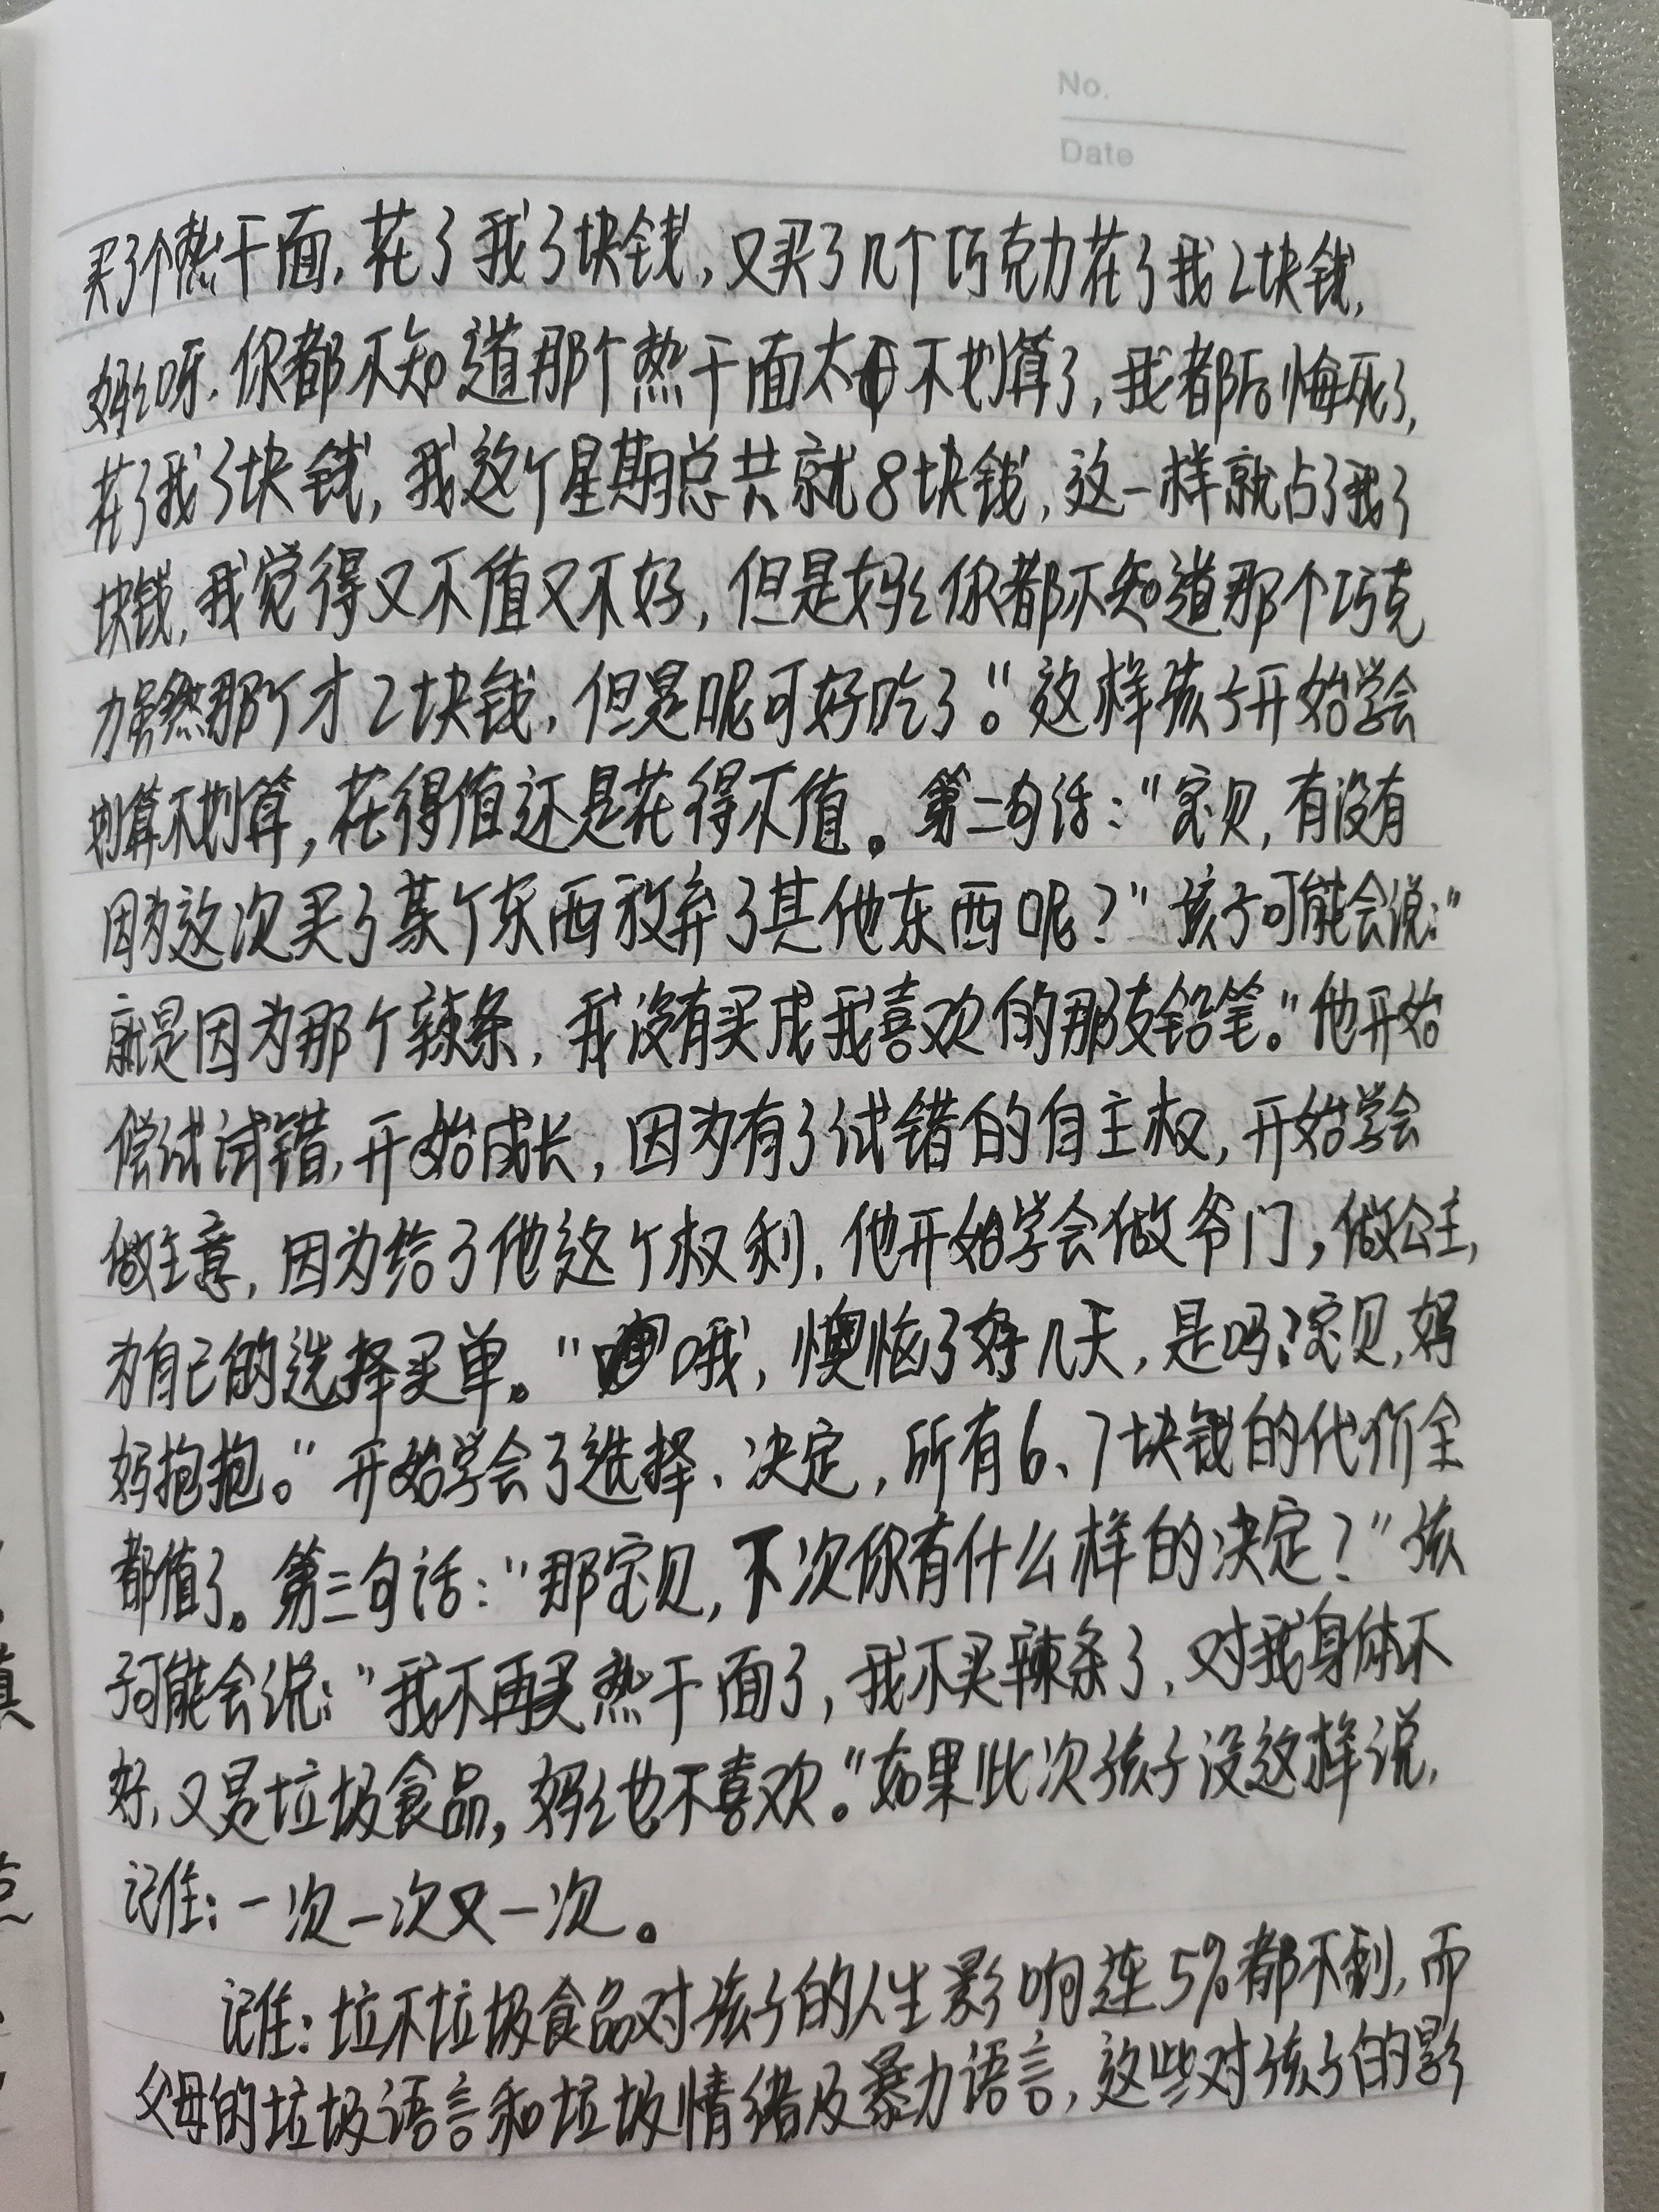 No.
Date
买了个热干面,花了我3块钱,又买了几个巧克力花了我2块钱,
妈妈呀,你都不知道那个热干面太不划算了,我都后悔死了,
花了我3块钱,我这个星期总共就8块钱,这一样就占了我3
块钱,我觉得又不值又不好,但是妈妈你都不知道那个巧克
力虽然那个才2块钱,但是呢可好吃了。"这样孩子开始学会
划算不划算,花得值还是花得不值。第二句话:"宝贝,有没有
因为这次买了某个东西放弃了其他东西呢?"孩子可能会说:"
就是因为那个辣条,我没有买成我喜欢的那支铅笔。"他开始
偿试试错,开始成长,因为有了试错的自主权,开始学会
做主意,因为给了他这个权利,他开始学会做爷门,做公主,
为自己的选择买单。"哦,懊恼了好几天,是吗?宝贝,妈
妈抱抱。"开始学会了选择、决定,所有6、7块钱的代价全
都值了。第三句话:"那宝贝,下次你有什么样的决定?"孩
子可能会说:"我不再买热干面了,我不买辣条了,对我身体不
好,又是垃圾食品,妈妈也不喜欢。"如果此次孩子没这样说,
记住:一次一次又一次。
记住:垃不垃圾食品对孩子的人生影响连5%都不到,而
父母的垃圾语言和垃圾情绪及暴力语言,这些对孩子的影